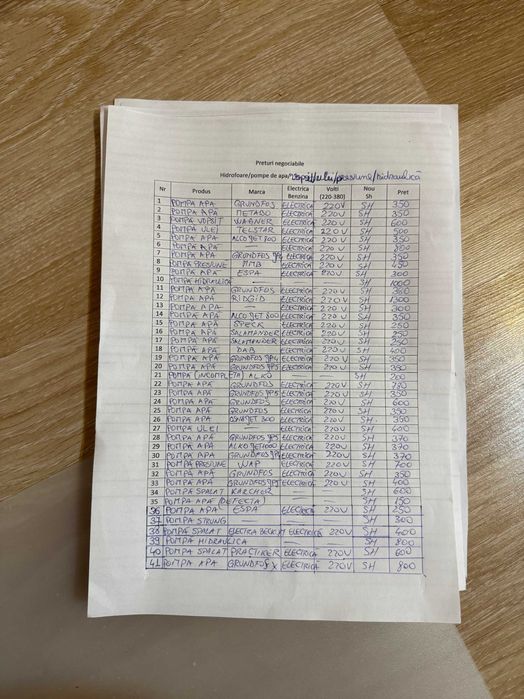 Preturi negociabile
Hidrofoare/pompe de apa/vopsit/ulei/presiune/hidraulică
Nr Produs Marca Electrica Benzina Volti (220-380) Nou Sh Pret
1 POMPA APA GRUNDFOS ELECTRICA 220V SH 350
2 POMPA APA METABO ELECTRICA 220V SH 350
3 POMPA VOPSIT WAGNER ELECTRICA 220V SH 600
4 POMPA ULEI TELSTAR ELECTRICA 220V SH 500
5 POMPA APA ALCO JET 800 ELECTRICA 220V SH 350
6 POMPA APA — ELECTRICA 220V SH
7 POMPA APA GRUNDFOS ELECTRICA 220V SH 350
8 POMPA PRESIUNE ELECTRICA 220V SH 450
9 POMPA APA ESPA ELECTRICA 220V SH 300
10 HIDRAULICA — — — SH 1000
11 POMPA APA GRUNDFOS ELECTRICA 220V SH 350
12 POMPA APA RIDGID ELECTRICA 220V SH 1300
13 POMPA APA — ELECTRICA 220V SH 300
14 POMPA APA ALCO JET 800 ELECTRICA 220V SH 350
15 POMPA APA SPECK ELECTRICA 220V SH 250
16 POMPA APA SALAMANDER ELECTRICA 220V SH 250
17 POMPA APA SALAMANDER ELECTRICA 220V SH 250
18 POMPA APA DAB ELECTRICA 220V SH 400
19 POMPA APA GRUNDFOS JP4 ELECTRICA 220V SH 350
20 POMPA APA GRUNDFOS JP5 ELECTRICA 220V SH 350
21 POMPA (INCOMPLETA) ALKO — — SH 200
22 POMPA APA GRUNDFOS ELECTRICA 220V SH
23 POMPA APA GRUNDFOS JP5 ELECTRICA 220V SH 350
24 POMPA APA GRUNDFOS ELECTRICA 220V SH 600
25 POMPA APA GRUNDFOS ELECTRICA 220V SH 350
26 POMPA APA 800 ELECTRICA 220V SH 350
27 POMPA ULEI — ELECTRICA 220V SH 400
28 POMPA APA GRUNDFOS JP5 ELECTRICA 220V SH 370
29 POMPA APA ALKO JET 1000 ELECTRICA 220V SH 370
30 POMPA APA GRUNDFOS ELECTRICA 220V SH 370
31 POMPA PRESIUNE WAP ELECTRICA 220V SH 700
32 POMPA APA GRUNDFOS ELECTRICA 220V SH 350
33 POMPA APA GRUNDFOS ELECTRICA 220V SH 400
34 POMPA SPALAT KARCHER ELECTRICA — SH 600
35 POMPA APA (DEFECTA) — — SH 150
36 POMPA APA ESPA ELECTRICA 220V SH 250
37 POMPA STRUNG — — — SH 300
38 POMPA SPALAT ELECTRA BECKUM ELECTRICA 220V SH 400
39 POMPA HIDRAULICA — — SH 800
40 POMPA SPALAT PRACTIKER ELECTRICA 220V SH 600
41 POMPA APA GRUNDFOS X ELECTRICA 220V SH 800